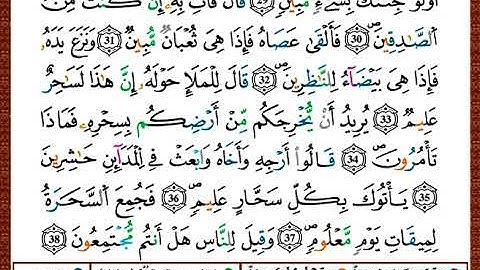 أَوَلَوْ جِئْتُكَ بِشَيْءٍ مُّبِينٍ ۝29 قَالَ فَأْتِ بِهِۦٓ إِن كُنتَ مِنَ
ٱلصَّـٰدِقِينَ ۝30 فَأَلْقَىٰ عَصَاهُ فَإِذَا هِىَ ثُعْبَانٌ مُّبِينٌ ۝31 وَنَزَعَ يَدَهُۥ
فَإِذَا هِىَ بَيْضَآءُ لِلنَّـٰظِرِينَ ۝32 قَالَ لِلْمَلَإِ حَوْلَهُۥٓ إِنَّ هَـٰذَا لَسَـٰحِرٌ
عَلِيمٌ ۝33 يُرِيدُ أَن يُخْرِجَكُم مِّنْ أَرْضِكُم بِسِحْرِهِۦ فَمَاذَا
تَأْمُرُونَ ۝34 قَالُوٓا۟ أَرْجِهْ وَأَخَاهُ وَٱبْعَثْ فِى ٱلْمَدَآئِنِ حَـٰشِرِينَ
۝35 يَأْتُوكَ بِكُلِّ سَحَّارٍ عَلِيمٍ ۝36 فَجُمِعَ ٱلسَّحَرَةُ
لِمِيقَـٰتِ يَوْمٍ مَّعْلُومٍ ۝37 وَقِيلَ لِلنَّاسِ هَلْ أَنتُم مُّجْتَمِعُونَ ۝38